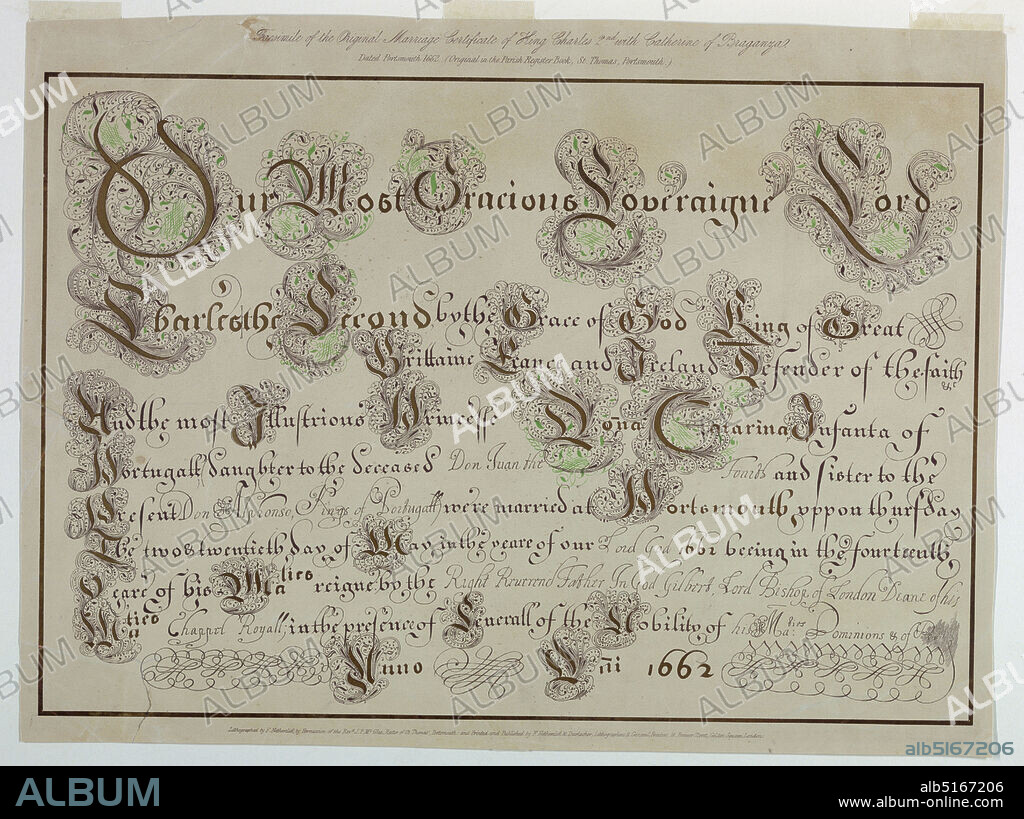 Facsimile of the Original Marriage Certificate of King Charles 2nd with Catherine of Braganza.
Dated Portsmouth 1662. (Original in the Parish Register Book, St. Thomas, Portsmouth.)
Our Most Gracious Soveraigne Lord
Charles the Second by the Grace of God King of Great
Brittaine France and Ireland Defender of the faith &c
And the most Illustrious Princesse Dona Catarina Infanta of
Portugall, daughter to the deceased Don Juan the Fourth and sister to the
Present Don Alphonso, King of Portugall, were married at Portsmouth uppon thursday
The two & twentieth day of May, in the yeare of our Lord God 1662 beeing in the fourteenth
yeare of his Maties reigne by the Right Reverend Father In God Gilbert Lord Bishop of London Deane of his
Maties Chappel Royall, in the presence of Severall of the Nobility of his Maties Dominions & of
Anno Dñi 1662
Lithographed by F. Netherclift, by Permission of the Revd. J. P. Mc Ghie, Rector of St. Thomas', Portsmouth: and Printed and Published by F. Netherclift & Durlacher, Lithographers & General Printers, Brewer Street, Golden Square, London.
ALBUM
alb5167206
ALBUM
alb5167206
www.album-online.com